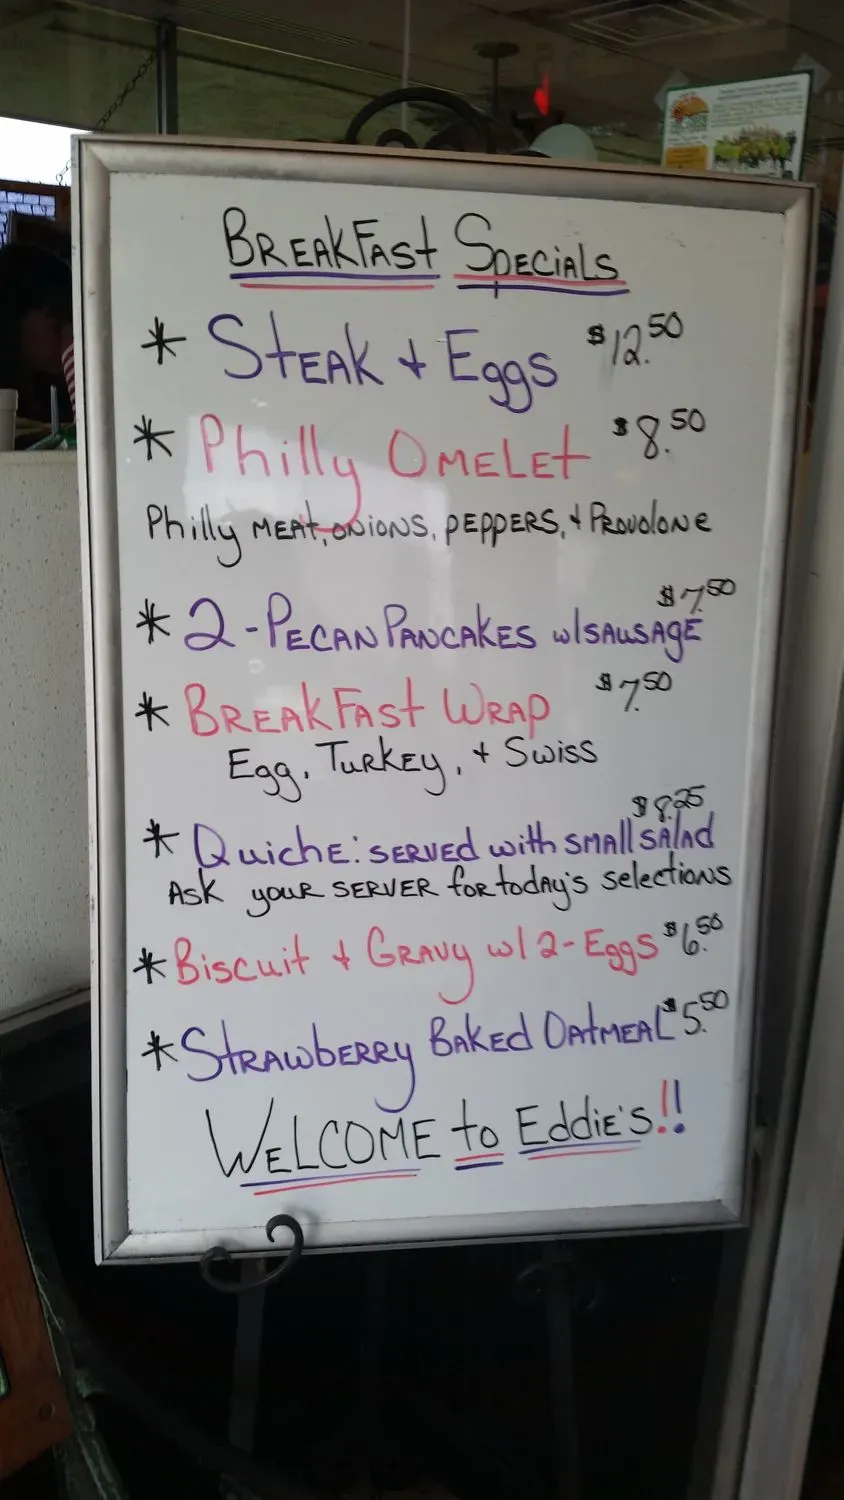 BREAKFAST SPECIALS
* STEAK + Eggs $12.50
* Philly OMELET $8.50
Philly MEAT, ONIONS, PEPPERS, + PROVOLONE
$7.50
* 2-PECAN PANCAKES w/SAUSAGE
* BREAKFAST WRAP $7.50
Egg, TURKEY, + Swiss
$8.25
* Quiche: SERVED with SMALL SALAD
ASK your SERVER for today's selections
* Biscuit + GRAVY w/ 2-Eggs $6.50
* STRAWBERRY BAKED OATMEAL $5.50
WELCOME to Eddie's!!